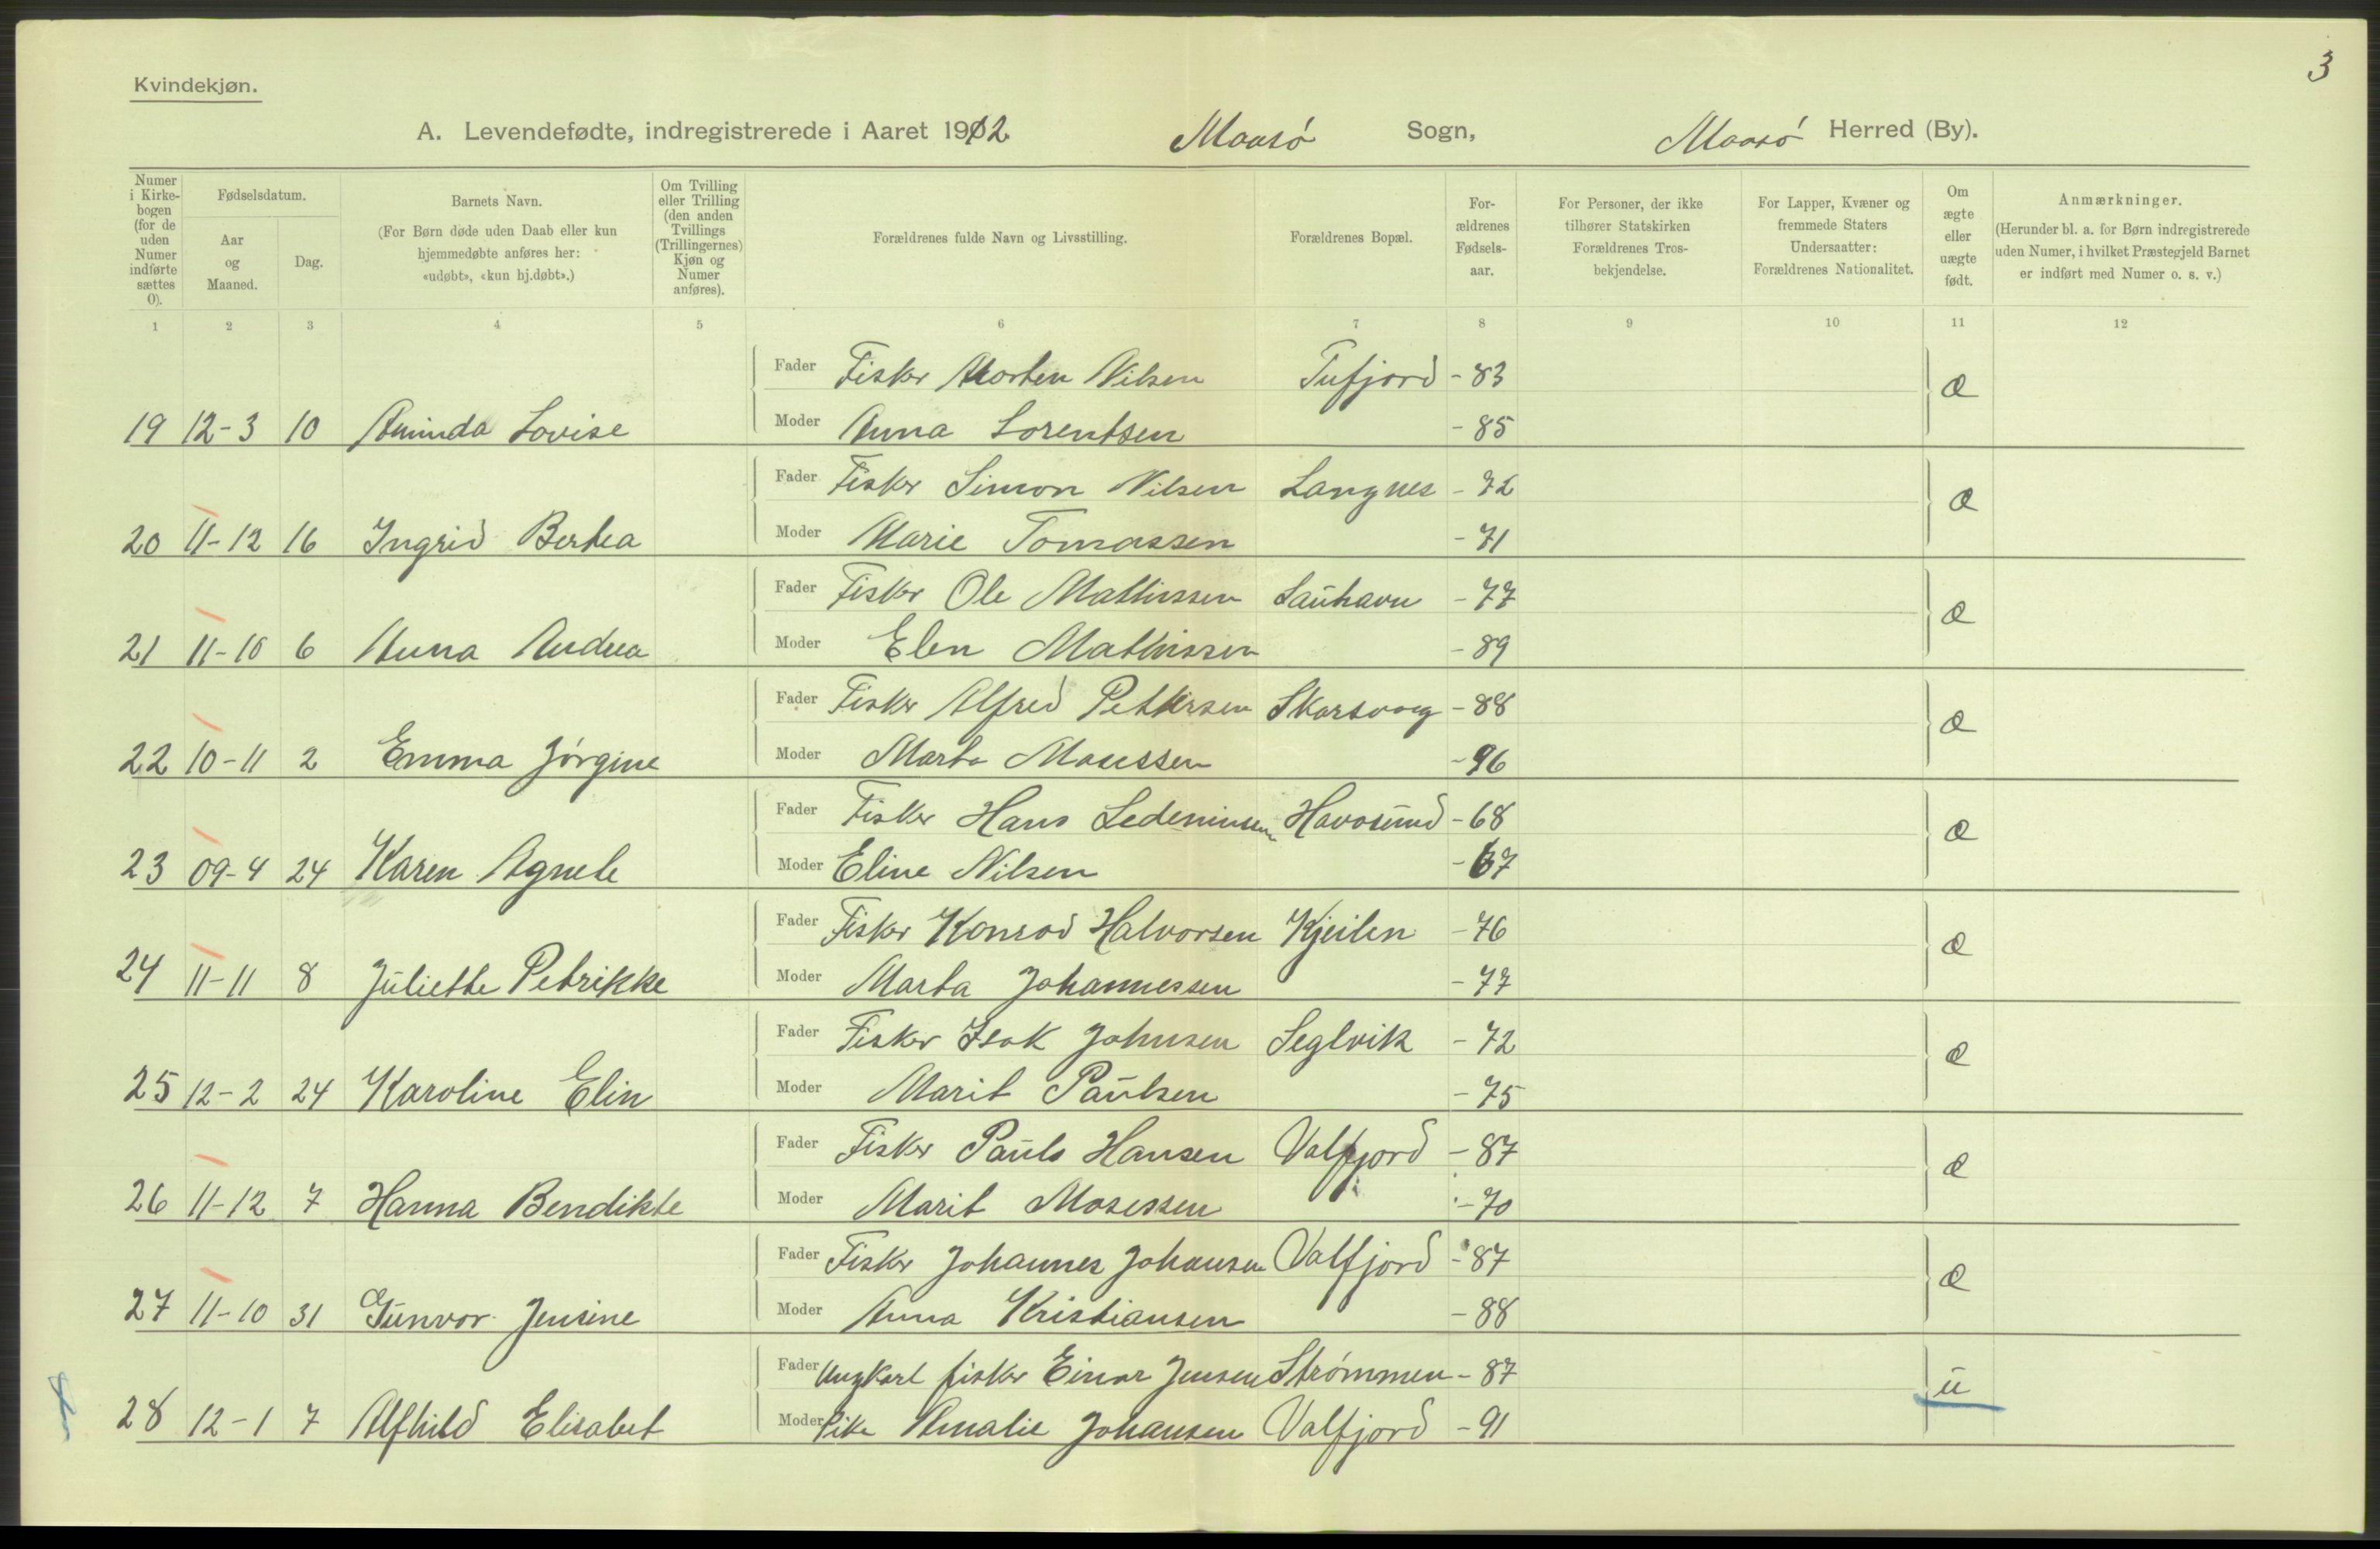 3
Kvindekjøn.
A. Levendefødte, indregistrerede i Aaret 1912. Maasø Sogn, Maasø Herred (By).
Numer i Kirkebogen (for de uden Numer indførte sættes 0).
Fødselsdatum.
Aar og Maaned.
Dag.
Barnets Navn.
(For Børn døde uden Daab eller kun hjemmedøbte anføres her: «udøbt», «kun hj.døbt».)
Om Tvilling eller Trilling (den anden Tvillings (Trillingernes) Kjøn og Numer anføres).
Forældrenes fulde Navn og Livsstilling.
Forældrenes Bopæl.
For-ældrenes Fødsels-aar.
For Personer, der ikke tilhører Statskirken Forældrenes Tros-bekjendelse.
For Lapper, Kvæner og fremmede Staters Undersaatter: Forældrenes Nationalitet.
Om ægte eller uægte født.
Anmærkninger.
(Herunder bl. a. for Børn indregistrerede uden Numer, i hvilket Præstegjeld Barnet er indført med Numer o. s. v.)
1 2 3 4 5 6 7 8 9 10 11 12
Fader Fisker Morten Nilsen Tufjord - 83 æ
19 12-3 10 Aminda Lovise Moder Anna Lorentsen - 85
Fader Fisker Simon Nilsen Langnes - 72 æ
20 11-12 16 Ingrid Bertea Moder Marie Tomassen - 71
Fader Fisker Ole Mathissen Lauhavn - 77 æ
21 11-10 6 Anna Andrea Moder Elen Mathissen - 89
Fader Fisker Alfred Pettersen Skarsvaag - 88 æ
22 10-11 2 Emma Jørgine Moder Marta Mosessen - 96
Fader Fisker Hans Havøsund - 68 æ
23 09-4 24 Karen Agnete Moder Eline Nilsen - 67
Fader Fisker Konrad Halvorsen Kjeilen - 76 æ
24 11-11 8 Juliette Petrikke Moder Marta Johannessen - 77
Fader Fisker Isak Johnsen Seglvik - 72 æ
25 12-2 24 Karoline Elin Moder Marit Paulsen - 75
Fader Fisker Pauls Hansen Valfjord - 87 æ
26 11-12 7 Hanna Bendikte Moder Marit Mosessen - 70
Fader Fisker Johannes Johansen Valfjord - 87 æ
27 11-10 31 Gunvor Jensine Moder Anna Kristiansen - 88
Fader Ungkarl fisker Einar Jensen Strømmen - 87 u
28 12-1 7 Alfhild Elisabet Moder Pike Amalie Johansen Valfjord - 91